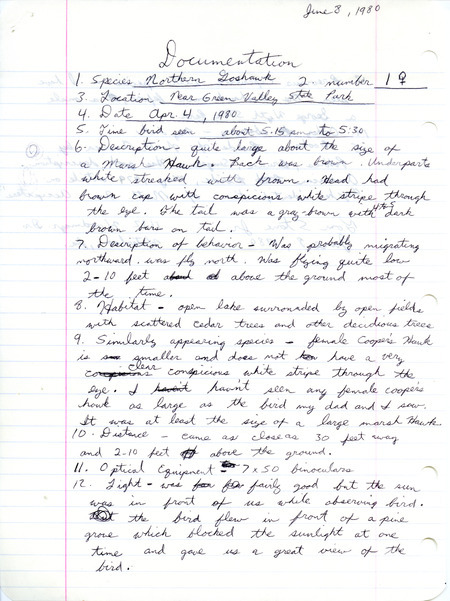 June 3, 1980
Documentation
1. Species Northern Goshawk 2. number 1 ♀
3. Location Near Green Valley State Park
4. Date Apr. 4, 1980
5. Time bird seen about 5:15 pm to 5:30
6. Description - quite large about the size of
a Marsh Hawk. Back was brown. Underparts
white streaked with brown. Head had
brown cap with conspicious white stripe through
the eye. The tail was a gray-brown with 4 to 5 dark
brown bars on tail.
7. Desription of behavior - Was probably migrating
northward. was fly north. Was flying quite low
2-10 feet above the ground most of
the time.
8. Habitat - open lake surronaded by open fields
with scattered cedar trees and other decidious trees
9. Similarly appearing species - female Cooper's Hawk
is smaller and does not have a very
clear conspicious white stripe through the
eye. I havn't seen any female coopers
hawk as large as the bird my dad and I saw.
It was at least the size of a large marsh Hawk.
10. Distance - came as close as 30 feet way
and 2-10 feet above the ground.
11. Optical Equipment - 7x50 binoculars
12. Light - was fairly good but the sun
was in front of us while observing bird.
the bird flew in front of a pine
grove which blocked the sunlight at one
time and gave us a great view of the
bird.